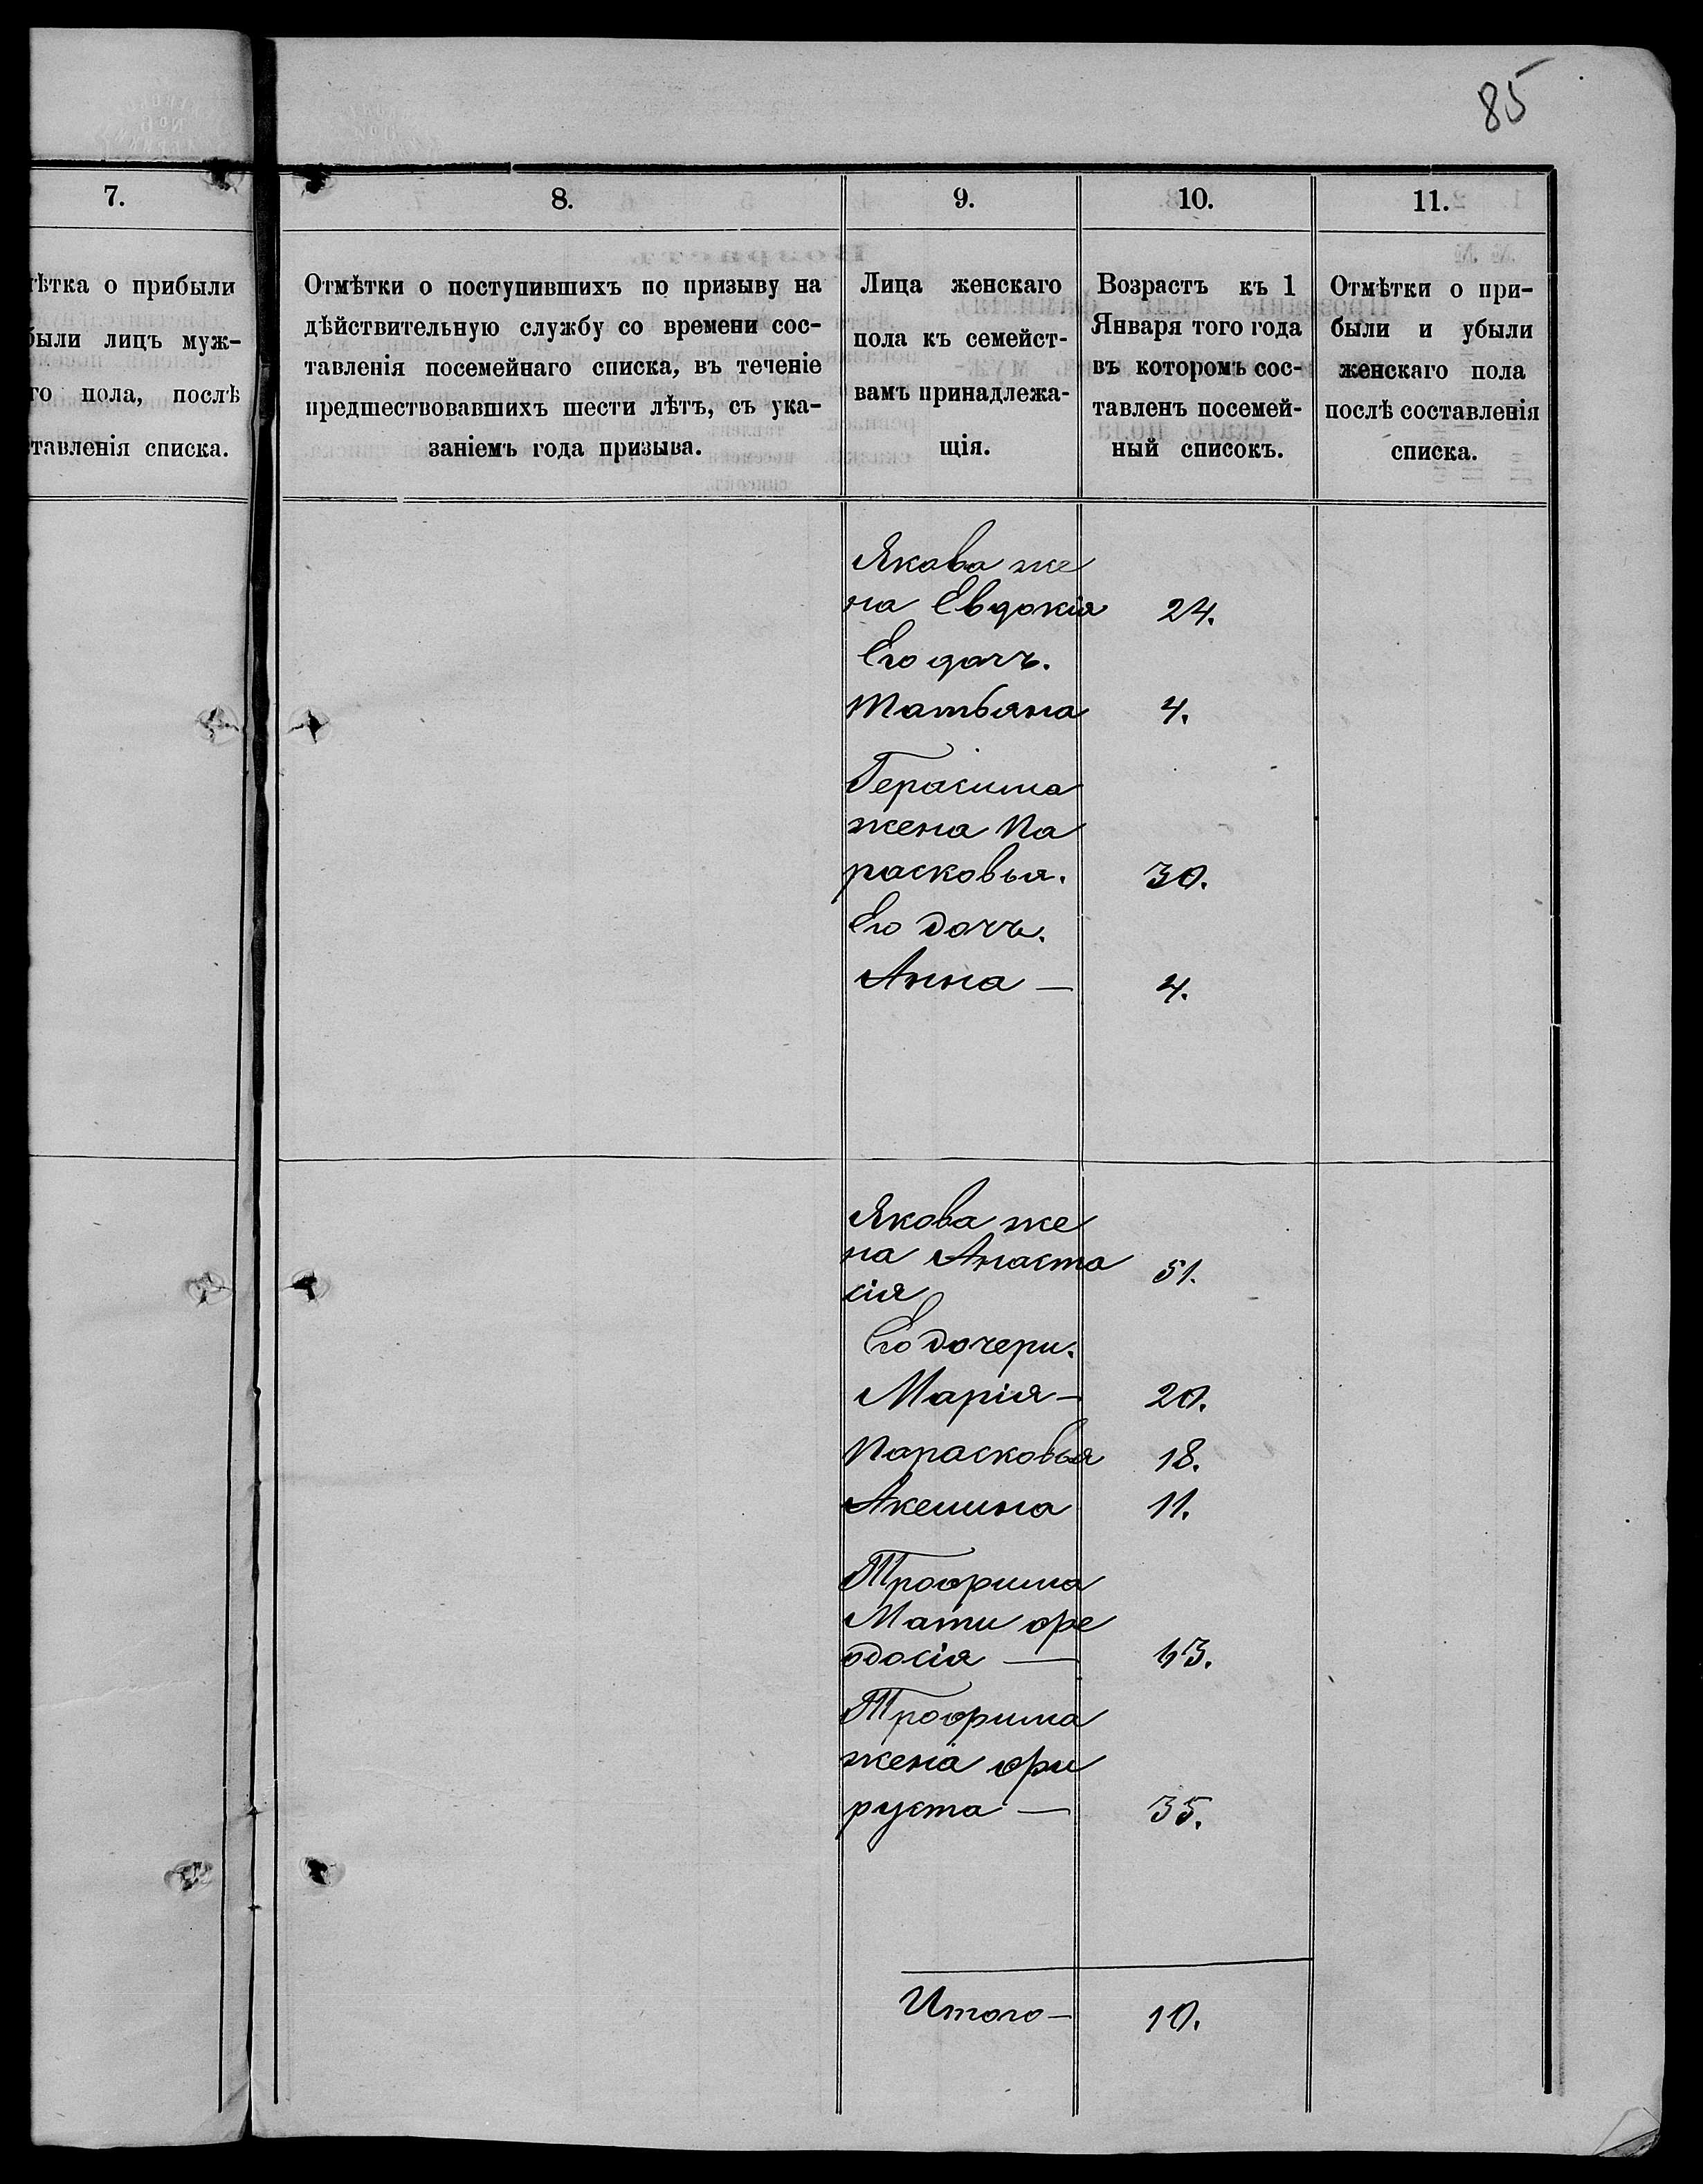 85
7.
8.
9.
10.
11.
ѣтка о прибыли
были лицъ муж-
го пола, послѣ
тавленія списка.
Отмѣтки о поступившихъ по призыву на
дѣйствительную службу со времени сос-
тавленія посемейнаго списка, въ теченіе
предшествовавшихъ шести лѣтъ, съ ука-
заніемъ года призыва.
Лица женскаго
пола къ семейст-
вамъ принадлежа-
щія.
Возрастъ къ 1
Января того года
въ которомъ сос-
тавленъ посемей-
ный списокъ.
Отмѣтки о при-
были и убыли
женскаго пола
послѣ составленія
списка.
Якова же
на Евдокія 24.
Его дочь.
Татьяна 4.
Герасима
жена Па
расковья. 30.
Его дочь.
Анна — 4.
Якова же
на Анаста 51.
сія
Его дочери.
Марія — 20.
Парасковья 18.
Акелина 11.
Трофима
Мати Фе
одосія — 63.
Трофима
жена Фи
руста — 35.
Итого — 10.